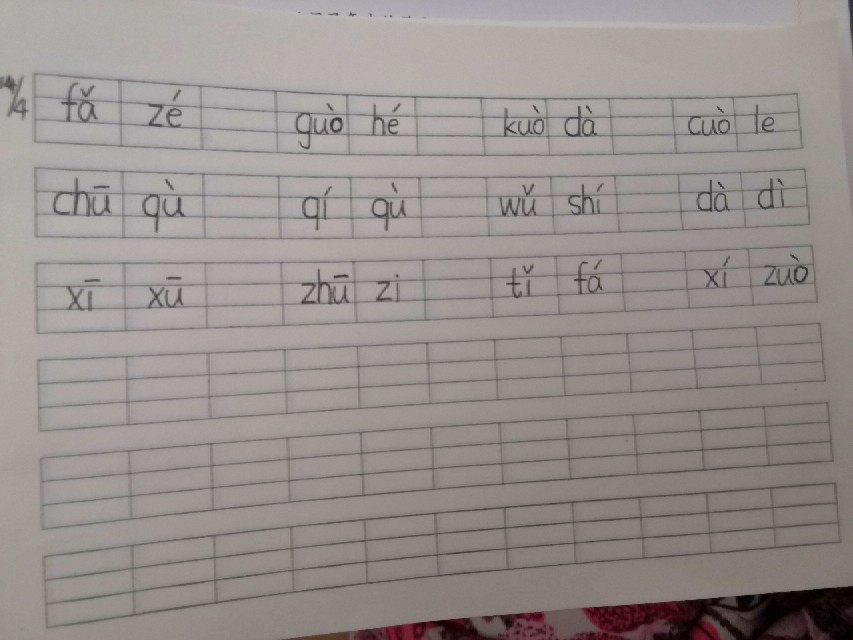 14/4 fǎ zé guò hé kuò dà cuò le
chū qù qí qù wǔ shí dà dì
xī xū zhū zi tǐ fá xí zuò